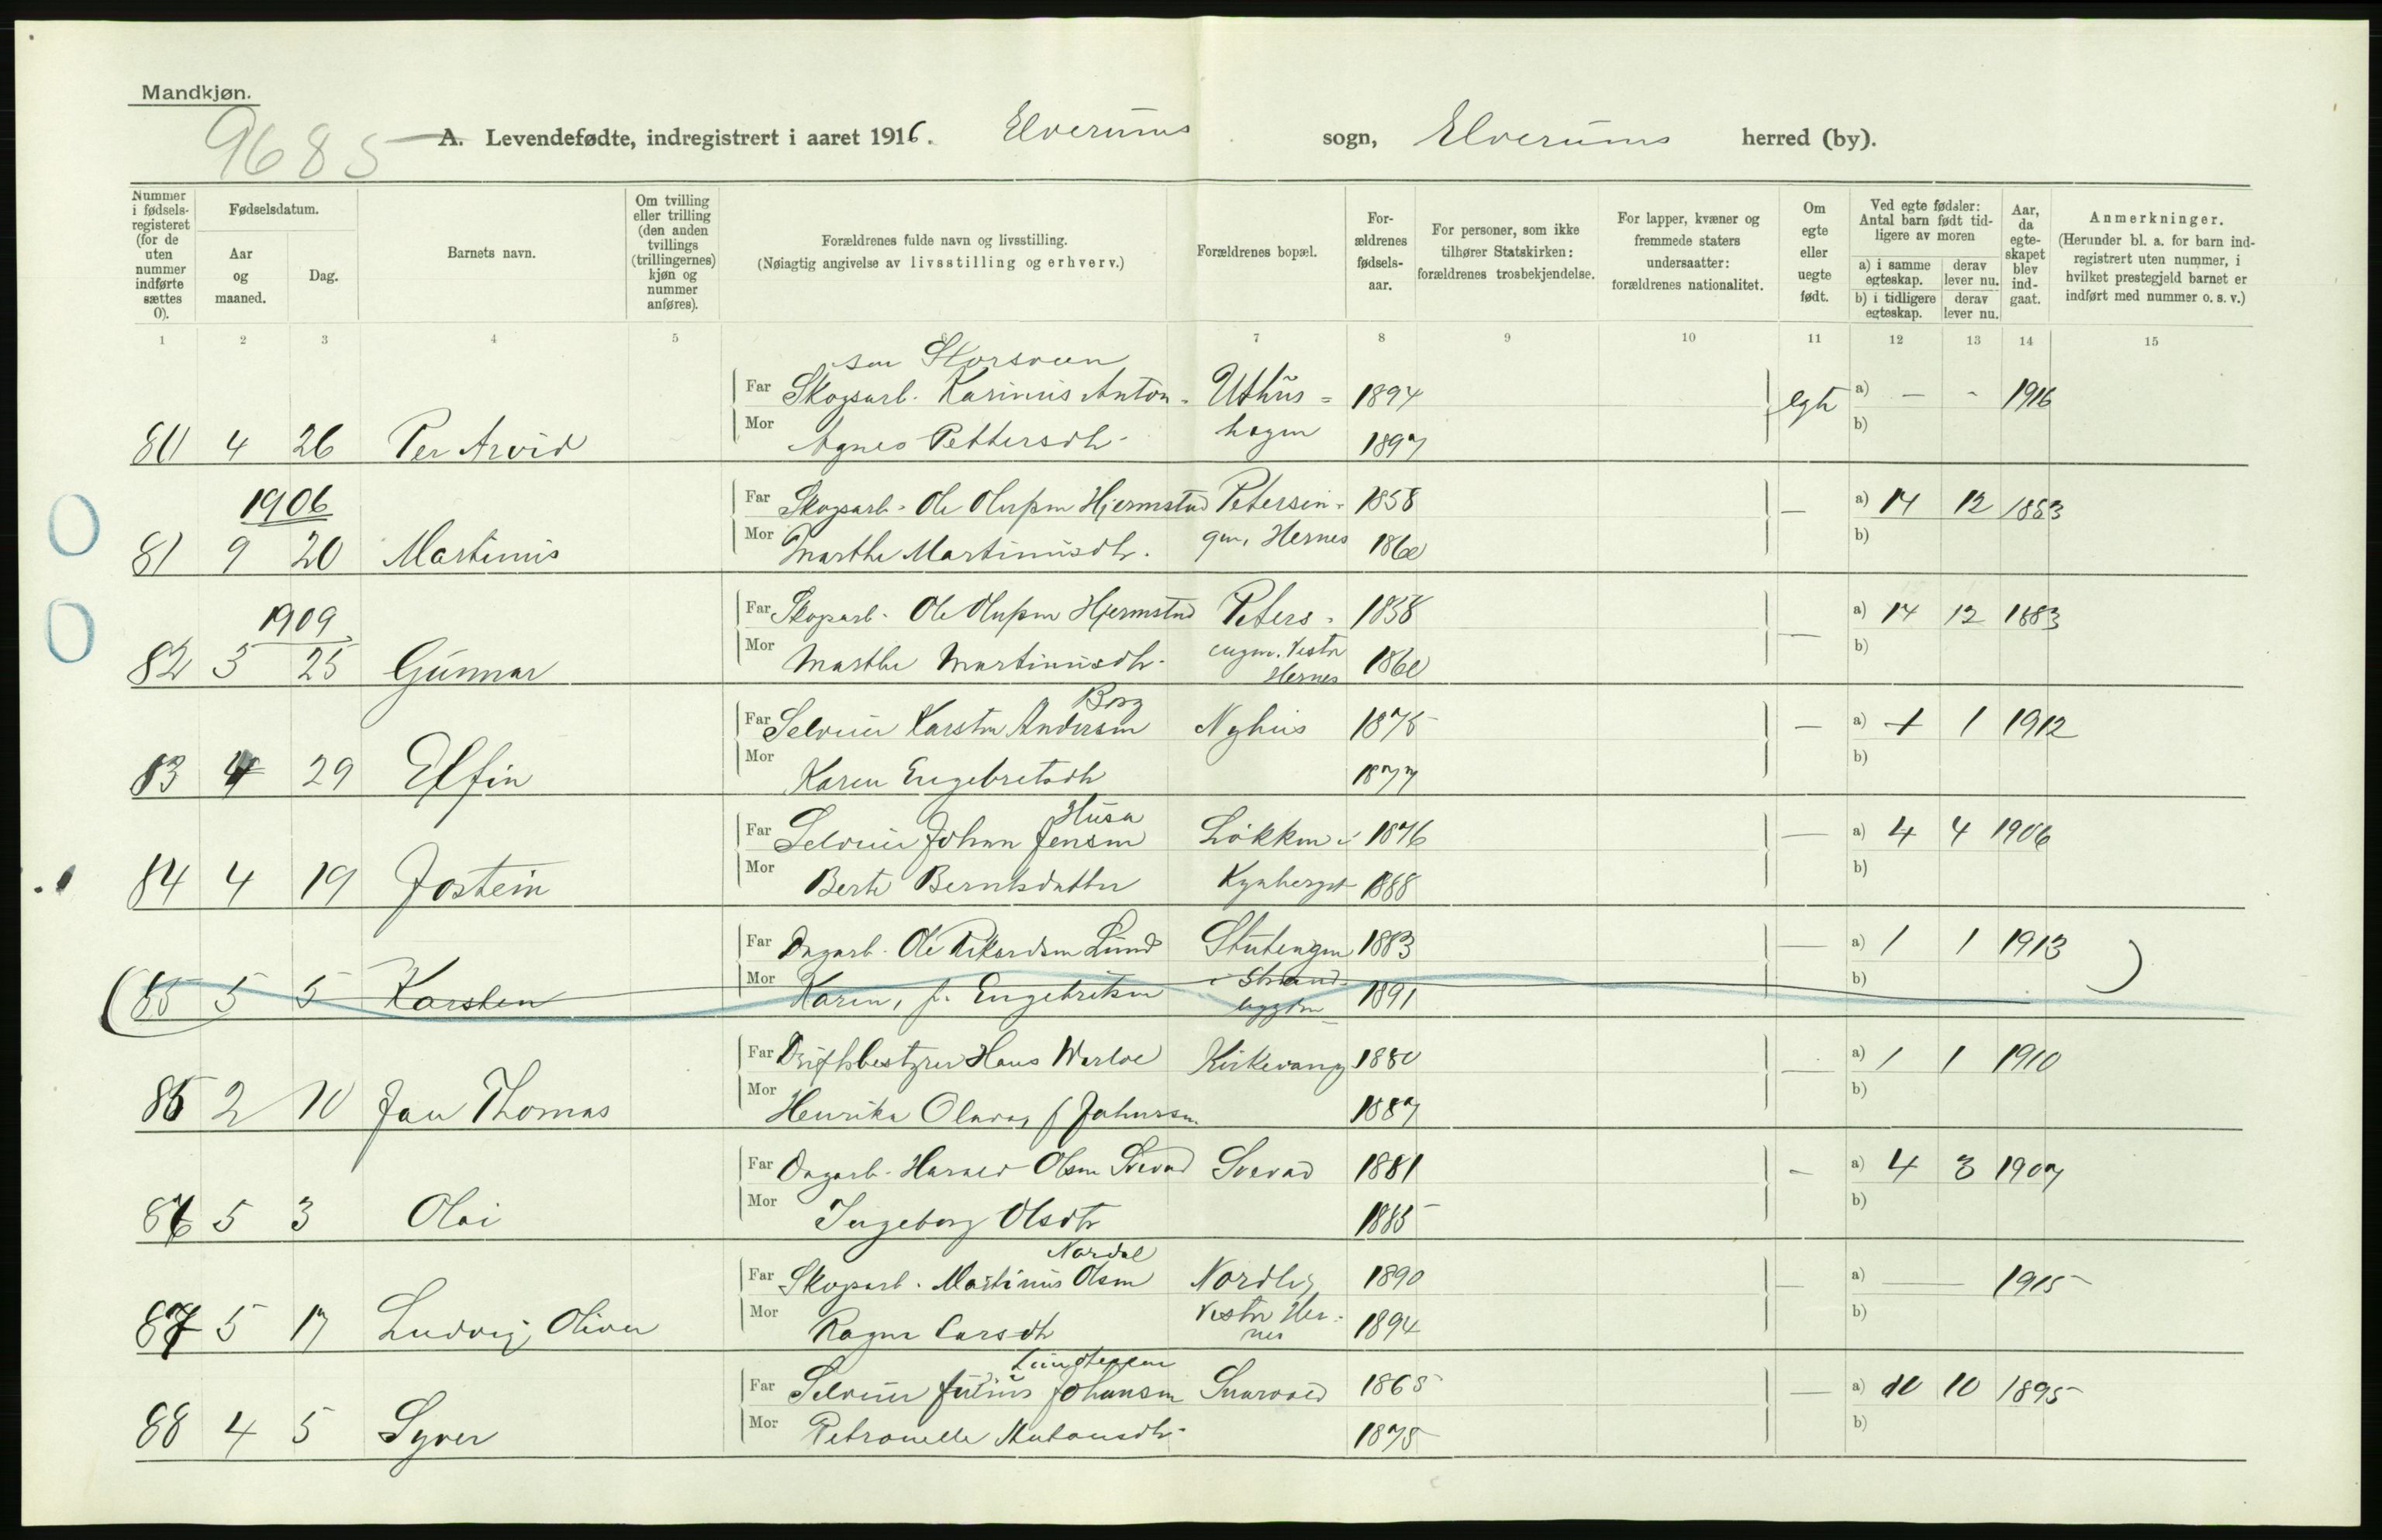 Mandkjøn.
9685
A. Levendefødte, indregistrert i aaret 1916. Elverums sogn, Elverums herred (by).
Nummer i fødsels-registeret (for de uten nummer indførte sættes 0).
Fødselsdatum.
Aar og maaned.
Dag.
Barnets navn.
Om tvilling eller trilling (den anden tvillings (trillingernes) kjøn og nummer anføres).
Forældrenes fulde navn og livsstilling.
(Nøiagtig angivelse av livsstilling og erhverv.)
Forældrenes bopæl.
For-ældrenes fødsels-aar.
For personer, som ikke tilhører Statskirken: forældrenes trosbekjendelse.
For lapper, kvæner og fremmede staters undersaatter: forældrenes nationalitet.
Om egte eller uegte født.
Ved egte fødsler: Antal barn født tid-ligere av moren
a) i samme egteskap. derav lever nu.
b) i tidligere egteskap. derav lever nu.
Aar, da egte-skapet blev ind-gaat.
Anmerkninger.
(Herunder bl. a. for barn ind-registrert uten nummer, i hvilket prestegjeld barnet er indført med nummer o. s. v.)
1 2 3 4 5 6 7 8 9 10 11 12 13 14 15
sen Storsveen
Far Skogsarb. Karinius Anton- Uthus- 1894 egte a) - - 1916
Mor Agnes Pettersdtr. hagen 1897 b)
80 4 26 Per Arvid
1906
Far Skogsarb. Ole Olufsen Hjermstad Petersen- 1858 — a) 14 12 1883
Mor Marthe Martinusdtr. gen, Hernes 1860 b)
81 9 20 Martinus
1909
Far Skogsarb. Ole Olufsen Hjermstad Peters- 1858 — a) 14 12 1883
Mor Marthe Martinusdtr. engen. Vestre Hernes 1860 b)
82 5 25 Gunnar
Borg
Far Selveier Karsten Andersen Nyhus 1875 — a) 1 1 1912
Mor Karen Engebretsdtr 1877 b)
83 4 29 Elfin
Husa
Far Selveier Johan Jensen Løkken i 1876 — a) 4 4 1906
Mor Berte Berntsdatter Kynberget 1888 b)
84 4 19 Jostein
Far Dagarb. Ole Rikardsen Lund Stutengen 1883 — a) 1 1 1913
Mor Karen, f. Engebretsen i Strand 1891 b)
85 5 5 Karsten
Far Driftsbestyrer Hans Warloe Kirkevang 1880 — a) 1 1 1910
Mor Henrika Olava, f Johnssen 1887 b)
85 2 10 Jan Thomas
Far Dagarb. Olsen Svevad Svevad 1881 — a) 4 3 1907
Mor Ingeborg Olsdtr 1885 b)
86 5 3 Olai
Nordal
Far Skogsarb. Martinus Olsen Nordli, 1890 — a) — 1915
Mor Ragna Larsdtr Vestre Her-nes 1894 b)
87 5 17 Ludvig Oliver
Far Selveier Julius Johansen 1865 — a) 10 10 1895
Mor Petronelle Antonsdtr. 1875 b)
88 4 5 Syver